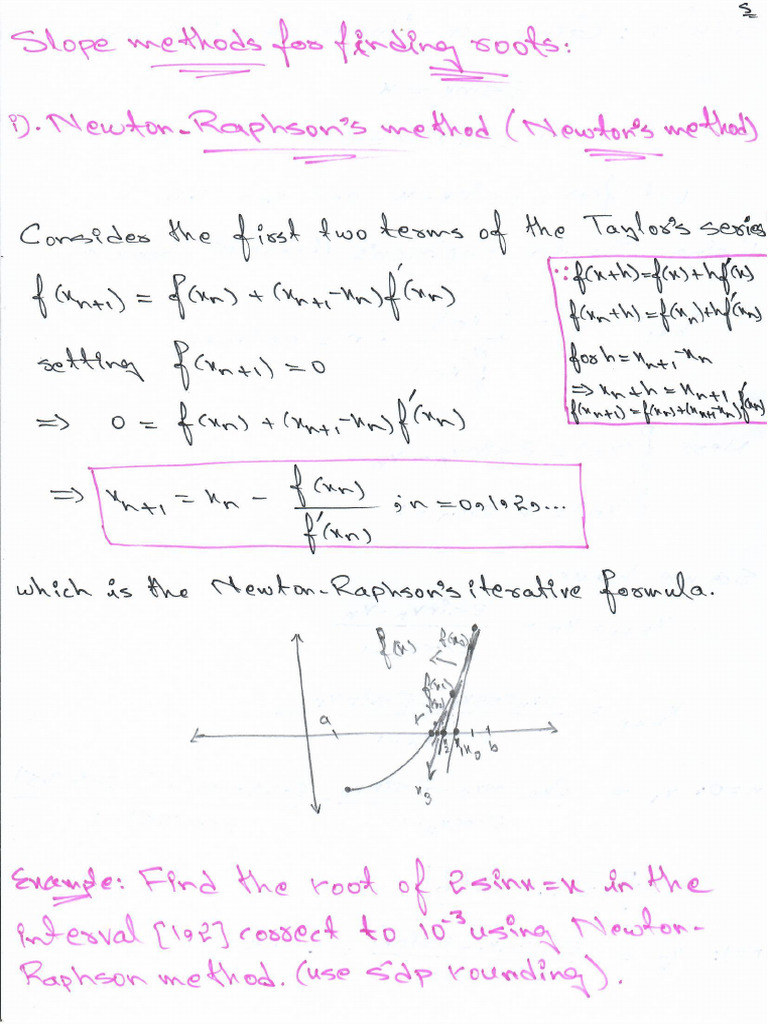 5
Slope methods for finding roots:
i). Newton-Raphson's method (Newton's method)
Consider the first two terms of the Taylor's series
f(xn+1) = f(xn) + (xn+1-xn)f'(xn)
∵ f(x+h)=f(x)+hf'(x)
f(xn+h)=f(xn)+hf'(xn)
for h=xn+1-xn
⇒ xn+h=xn+1
f(xn+1)=f(xn)+(xn+1-xn)f'(xn)
setting f(xn+1)=0
⇒ 0 = f(xn)+(xn+1-xn)f'(xn)
⇒ xn+1 = xn - f(xn)/f'(xn) ; n=0,1,2,...
which is the Newton-Raphson's iterative formula.
f(x) f(x0)
f(x1)
a r x0 b
x3
Example: Find the root of 2sinx=x in the
interval [1,2] correct to 10^-3 using Newton-
Raphson method. (use 5dp rounding).